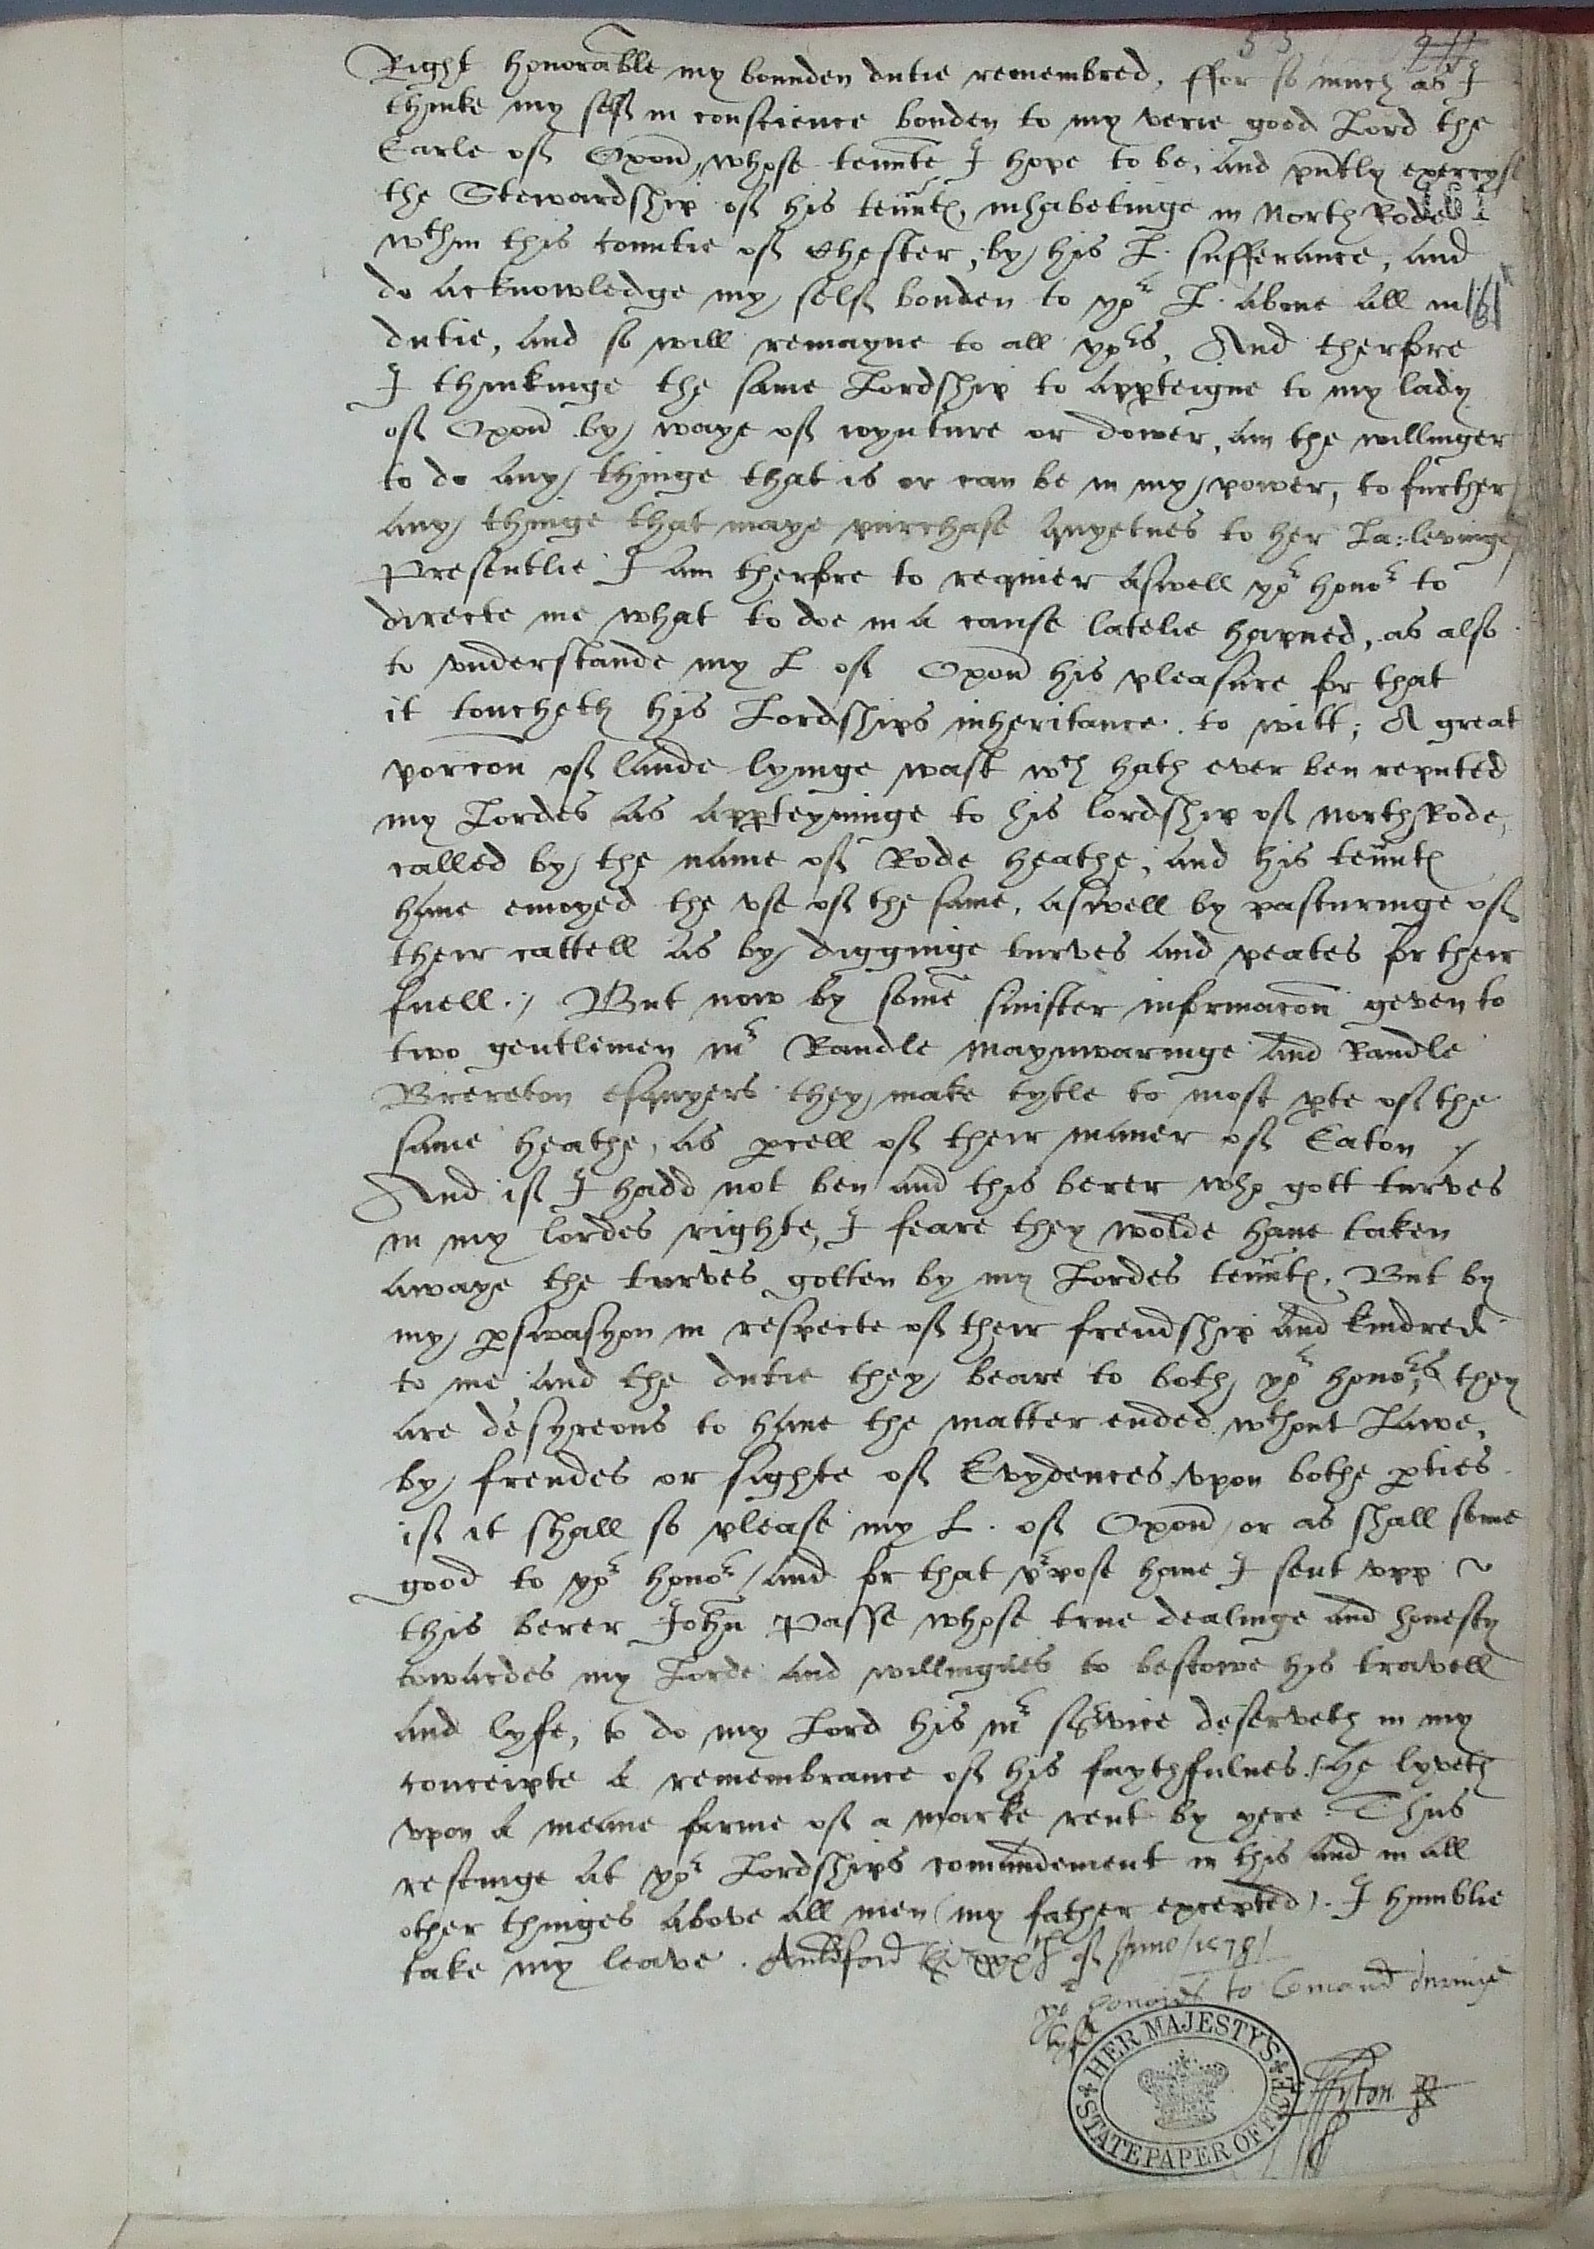 53
Right honorable my bounden dutie remembred, ffor so much as I
thinke my self in conscience bonden to my verie good Lord the
Earle of Oxon, whose tennte I hope to be, and pntly exercyse
the Stewardship of his tennts, inhabetinge in North Rode
161
wthin this countie of Chester, by his L. sufferance, and
do acknowledge my self bonden to yor L. above all in
161
dutie, and so will remayne to all yors, And therfore
I thinkinge the same Lordship to appteigne to my lady
of Oxon by waye of ioynture or dower, am the willinger
to do any thinge that is or can be in my power, to further
any thinge that maye purchase quyetnes to her La: levinge
Presentlie I am therfore to requier aswell yor honor to
directe me what to doe in a cause latelie hapned, as also
to understande my L of Oxon his pleasure for that
it toucheth his Lordships inheritance. to witt; A great
porcon of lande lyinge wast wch hath ever ben reputed
my Lordes as appteyninge to his lordship of North Rode,
called by the name of Rode heathe, and his tennts
have enioyed the use of the same, aswell by pasturinge of
their cattell as by digginge turves and peates for their
fuell./ But now by some sinister informacon geven to
two gentlemen mr Randle Maynwaringe and Randle
Brereton esquyers they make tytle to most pte of the
same heathe, as pcell of their maner of Eaton /
And if I hadd not ben and this berer who gott turves
in my lordes righte, I feare they wolde have taken
awaye the turves gotten by my Lordes tennts, But by
my pswasyon in respecte of their frendship and kindred
to me and the dutie they beare to both yor honors, they
are desyreous to have the matter ended wthout Lawe,
by frendes or sighte of Evydences upon bothe pties
if it shall so please my L. of Oxon, or as shall seme
good to yor honor/ and for that prpose have I sent upp
this berer John Passe whose true dealinge and honesty
towardes my Lorde and willingnes to bestowe his travell
and lyfe, to do my Lord his mr service deserveth in my
conceipte a remembrance of his faythfulnes./ he lyveth
upon a meane farme of a marke rent by yere : Thus
restinge at yor Lordships comandement in this and in all
other thinges above all men (my father excepted). I humblie
take my leave. of June /1578/
yor honors to Comand duringe
lyff
Ffyton
HER MAJESTY'S STATE PAPER OFFICE